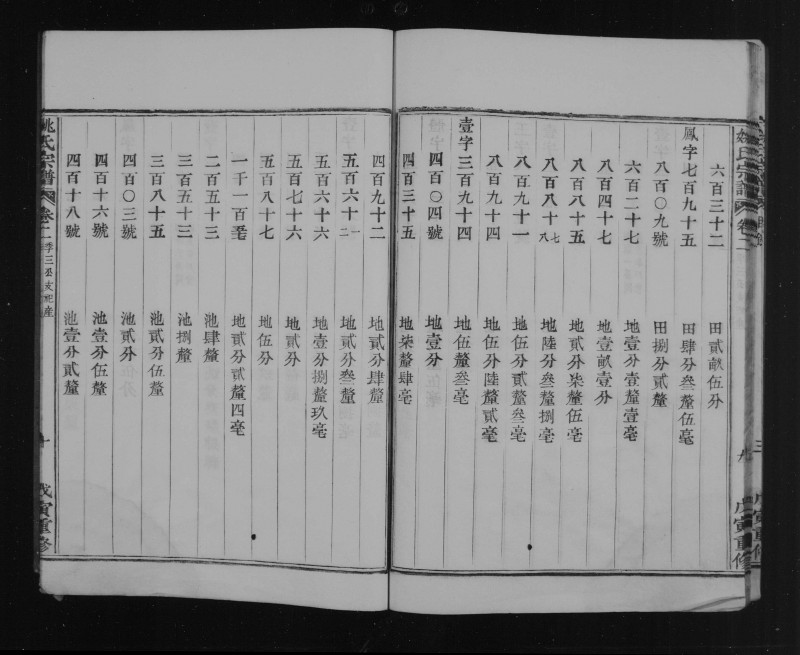 姚氏宗譜 卷二 九 戊寅重修
六百三十二 田貳畝伍分
鳳字七百九十五 田肆分叁釐伍毫
八百〇九號 田捌分貳釐
六百二十七 地壹分壹釐壹毫
八百四十七 地壹畝壹分
八百八十五 地貳分柒釐伍毫
八百八十七八 地陸分叁釐捌毫
八百九十一 地伍分貳釐叁毫
八百九十四 地伍分陸釐貳毫
壹字三百九十四 地伍釐叁毫
四百〇四號 地壹分
四百三十五 地柒釐肆毫
四百九十二 地貳分肆釐
五百六十一二 地貳分叁釐
五百六十六 地壹分捌釐玖毫
五百七十六 地貳分
五百八十七 地伍分
一千一百零 地貳分貳釐四毫
二百五十三 池肆釐
三百五十三 池捌釐
三百八十五 池貳分伍釐
四百〇三號 池貳分
四百十六號 池壹分伍釐
四百十八號 池壹分貳釐
姚氏宗譜 卷二 季三公支祀產 十 戊寅重修